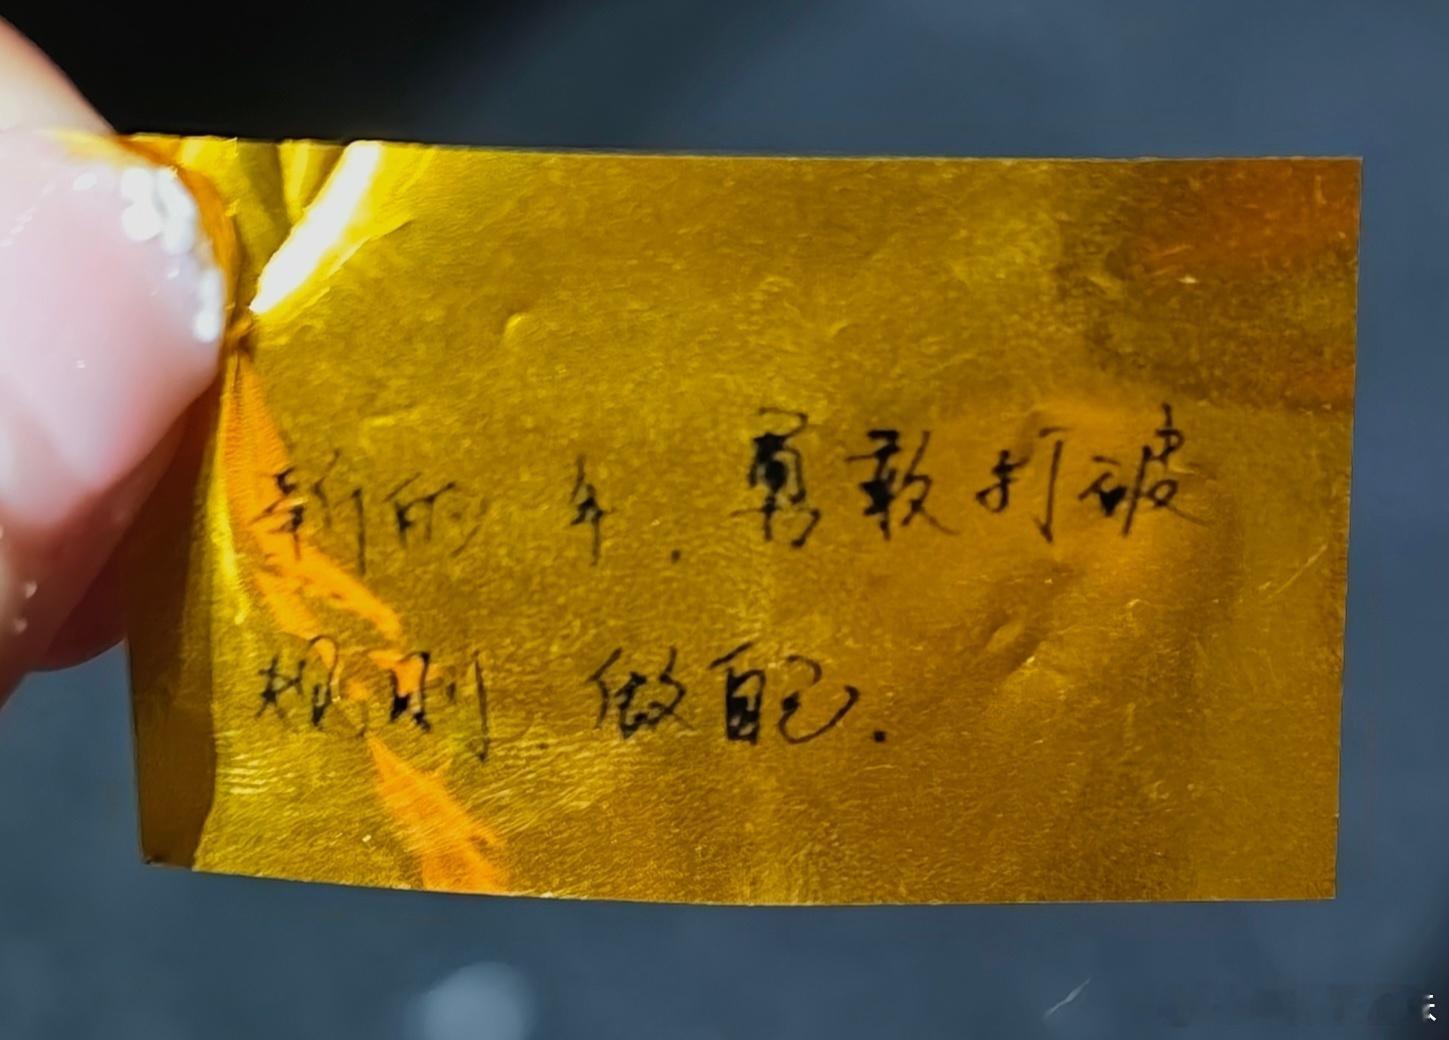 新的 年. 勇敢打破
规则. 做自己.